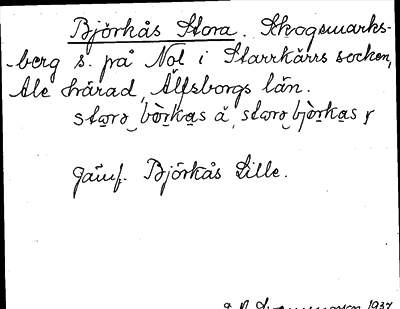 Björkås Stora. Skogsmarks-
berg s. på Nol i Starrkärrs socken,
Ale härad, Älfsborgs län.
starə bò̱rkas ä, starə bjò̱rkas r
Jämf. Björkås Lille.
1937